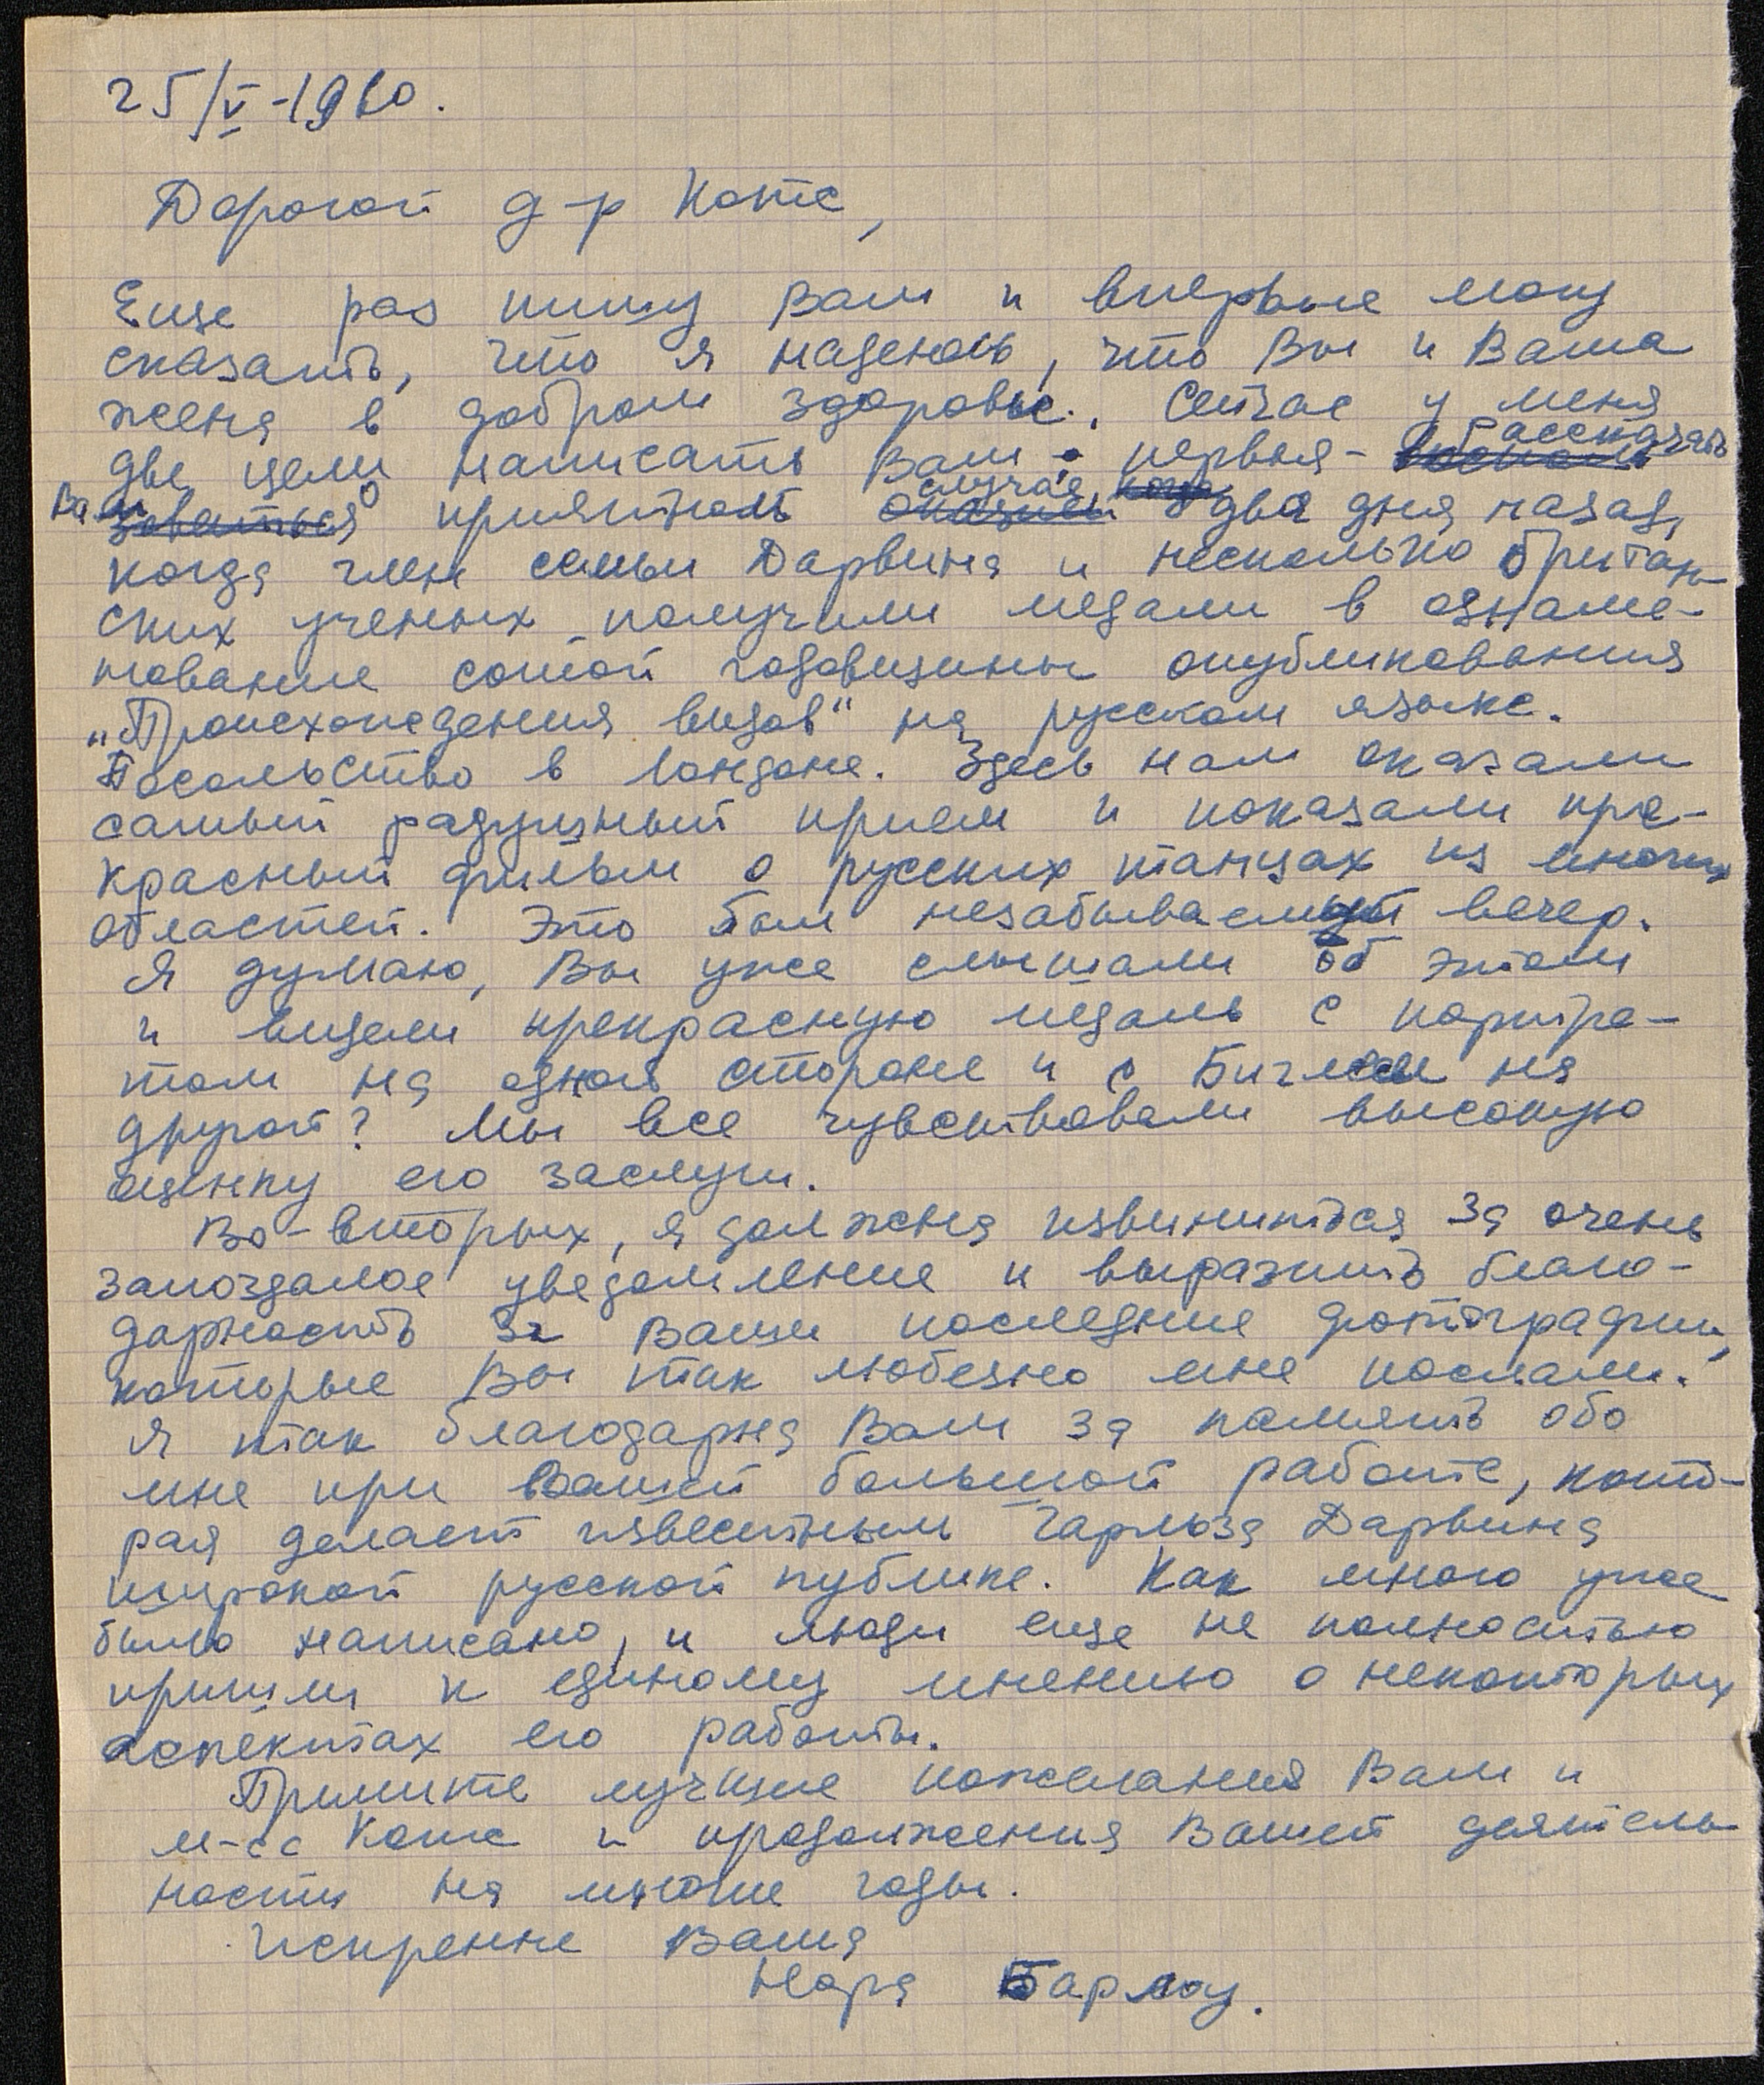 25/V-1960.
Дорогой д-р Котс,
Еще раз пишу Вам и впервые могу
сказать, что я надеюсь, что Вы и Ваша
жена в добром здоровье. Сейчас у меня
две цели написать Вам: первая - рассказать
Вам о приятном случае два дня назад,
когда член семьи Дарвина и несколько британ-
ских ученых получили медали в ознаме-
нование сотой годовщины опубликования
„Происхождения видов" на русском языке.
Посольство в Лондоне. Здесь нам оказали
самый радушный прием и показали пре-
красный фильм о русских танцах из многих
областей. Это был незабываемый вечер.
Я думаю, Вы уже слышали об этом
и видели прекрасную медаль с портре-
том на одной стороне и с Биглем на
другой? Мы все чувствовали высокую
оценку его заслуги.
Во-вторых, я должна извиниться за очень
запоздалое уведомление и выразить благо-
дарность за Ваши последние фотографии,
которые Вы так любезно мне послали.
Я так благодарна Вам за память обо
мне при Вашей большой работе, кото-
рая делает известным Чарльза Дарвина
широкой русской публике. Как много уже
было написано, и люди еще не полностью
пришли к единому мнению о некоторых
аспектах его работы.
Примите лучшие пожелания Вам и
м-сс Котс и продолжения Вашей деятель-
ности на многие годы.
Искренне Ваша
Нора Барлоу.